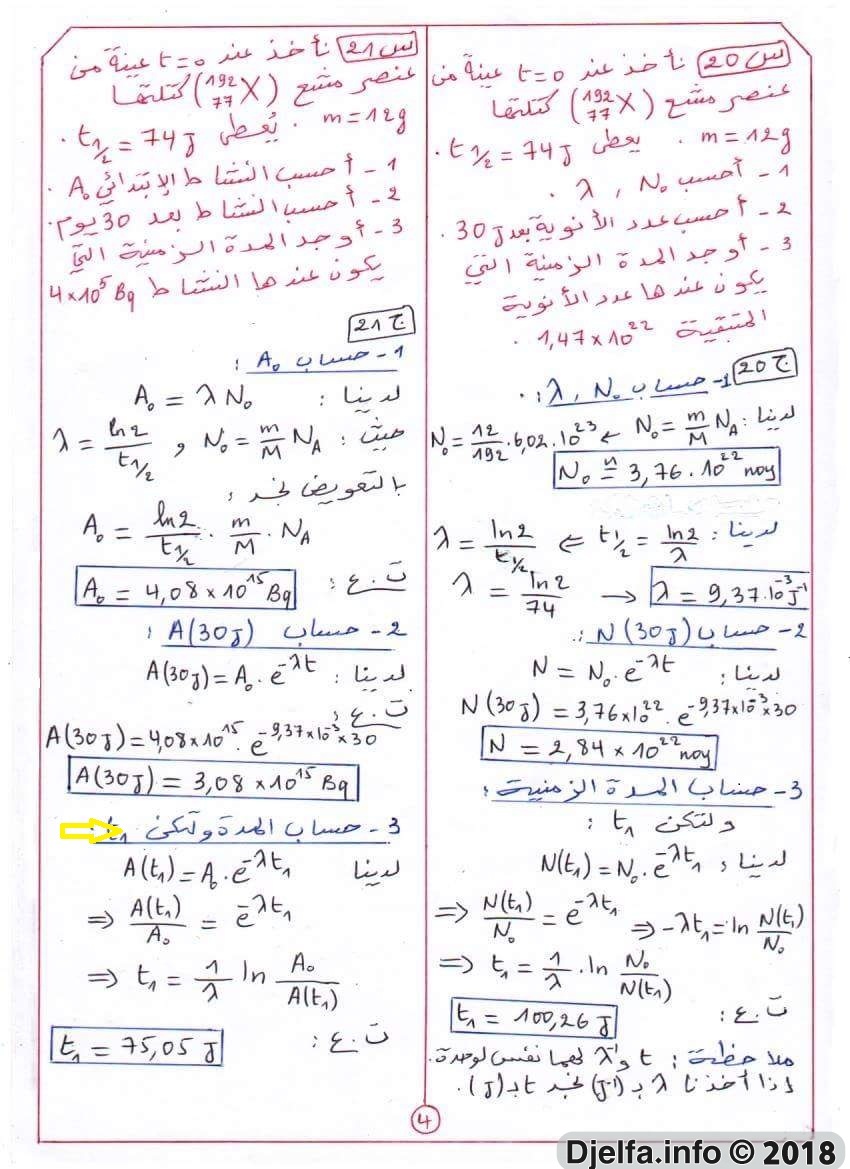 س20 نأخذ عند t=0 عينة من
عنصر مشع (¹⁹²₇₇X) كتلتها
m=12g . يعطى t1/2 = 74J .
1- أحسب N₀ , λ .
2- أحسب عدد الأنوية بعد 30J .
3- أوجد المدة الزمنية التي
يكون عندها عدد الأنوية
المتبقية 1,47×10²² .
ج20
1- حساب N₀ , λ :
لدينا : N₀ = m/M N_A ⇐ N₀ = 12/192 . 6,02.10²³
N₀ ≃ 3,76 . 10²² noy
لدينا : t1/2 = ln2/λ ⇐ λ = ln2/t1/2
λ = ln2/74 → λ = 9,37.10⁻³ J⁻¹
2- حساب N(30J) :
لدينا : N = N₀ . e^(-λt)
N(30J) = 3,76×10²² . e^(-9,37×10⁻³×30)
N = 2,84 × 10²² noy
3- حساب المدة الزمنية :
ولتكن t₁ :
لدينا : N(t₁) = N₀ . e^(-λt₁)
⇒ N(t₁)/N₀ = e^(-λt₁) ⇒ -λt₁ = ln N(t₁)/N₀
⇒ t₁ = 1/λ . ln N₀/N(t₁)
ت.ع : t₁ = 100,26 J
ملاحظة : t و λ⁻¹ لهما نفس لوحدة.
اذا أخذنا λ بـ (J⁻¹) نجد t بـ (J) .
س21 نأخذ عند t=0 عينة من
عنصر مشع (¹⁹²₇₇X) كتلتها
m=12g . يُعطى t1/2 = 74J .
1- أحسب النشاط الإبتدائي A₀ .
2- أحسب النشاط بعد 30 يوم .
3- أوجد المدة الزمنية التي
يكون عندها النشاط 4×10⁵ Bq
ج21
1- حساب A₀ :
لدينا : A₀ = λ N₀
حيث : N₀ = m/M N_A و λ = ln2/t1/2
بالتعويض نجد :
A₀ = ln2/t1/2 . m/M . N_A
ت.ع : A₀ = 4,08 × 10¹⁵ Bq
2- حساب A(30J) :
لدينا : A(30J) = A₀ . e^(-λt)
ت.ع :
A(30J) = 4,08×10¹⁵ . e^(-9,37×10⁻³×30)
A(30J) = 3,08 × 10¹⁵ Bq
3- حساب المدة ولتكن t₁ .
لدينا A(t₁) = A₀ . e^(-λt₁)
⇒ A(t₁)/A₀ = e^(-λt₁)
⇒ t₁ = 1/λ ln A₀/A(t₁)
ت.ع : t₁ = 75,05 J
4
Djelfa.info © 2018